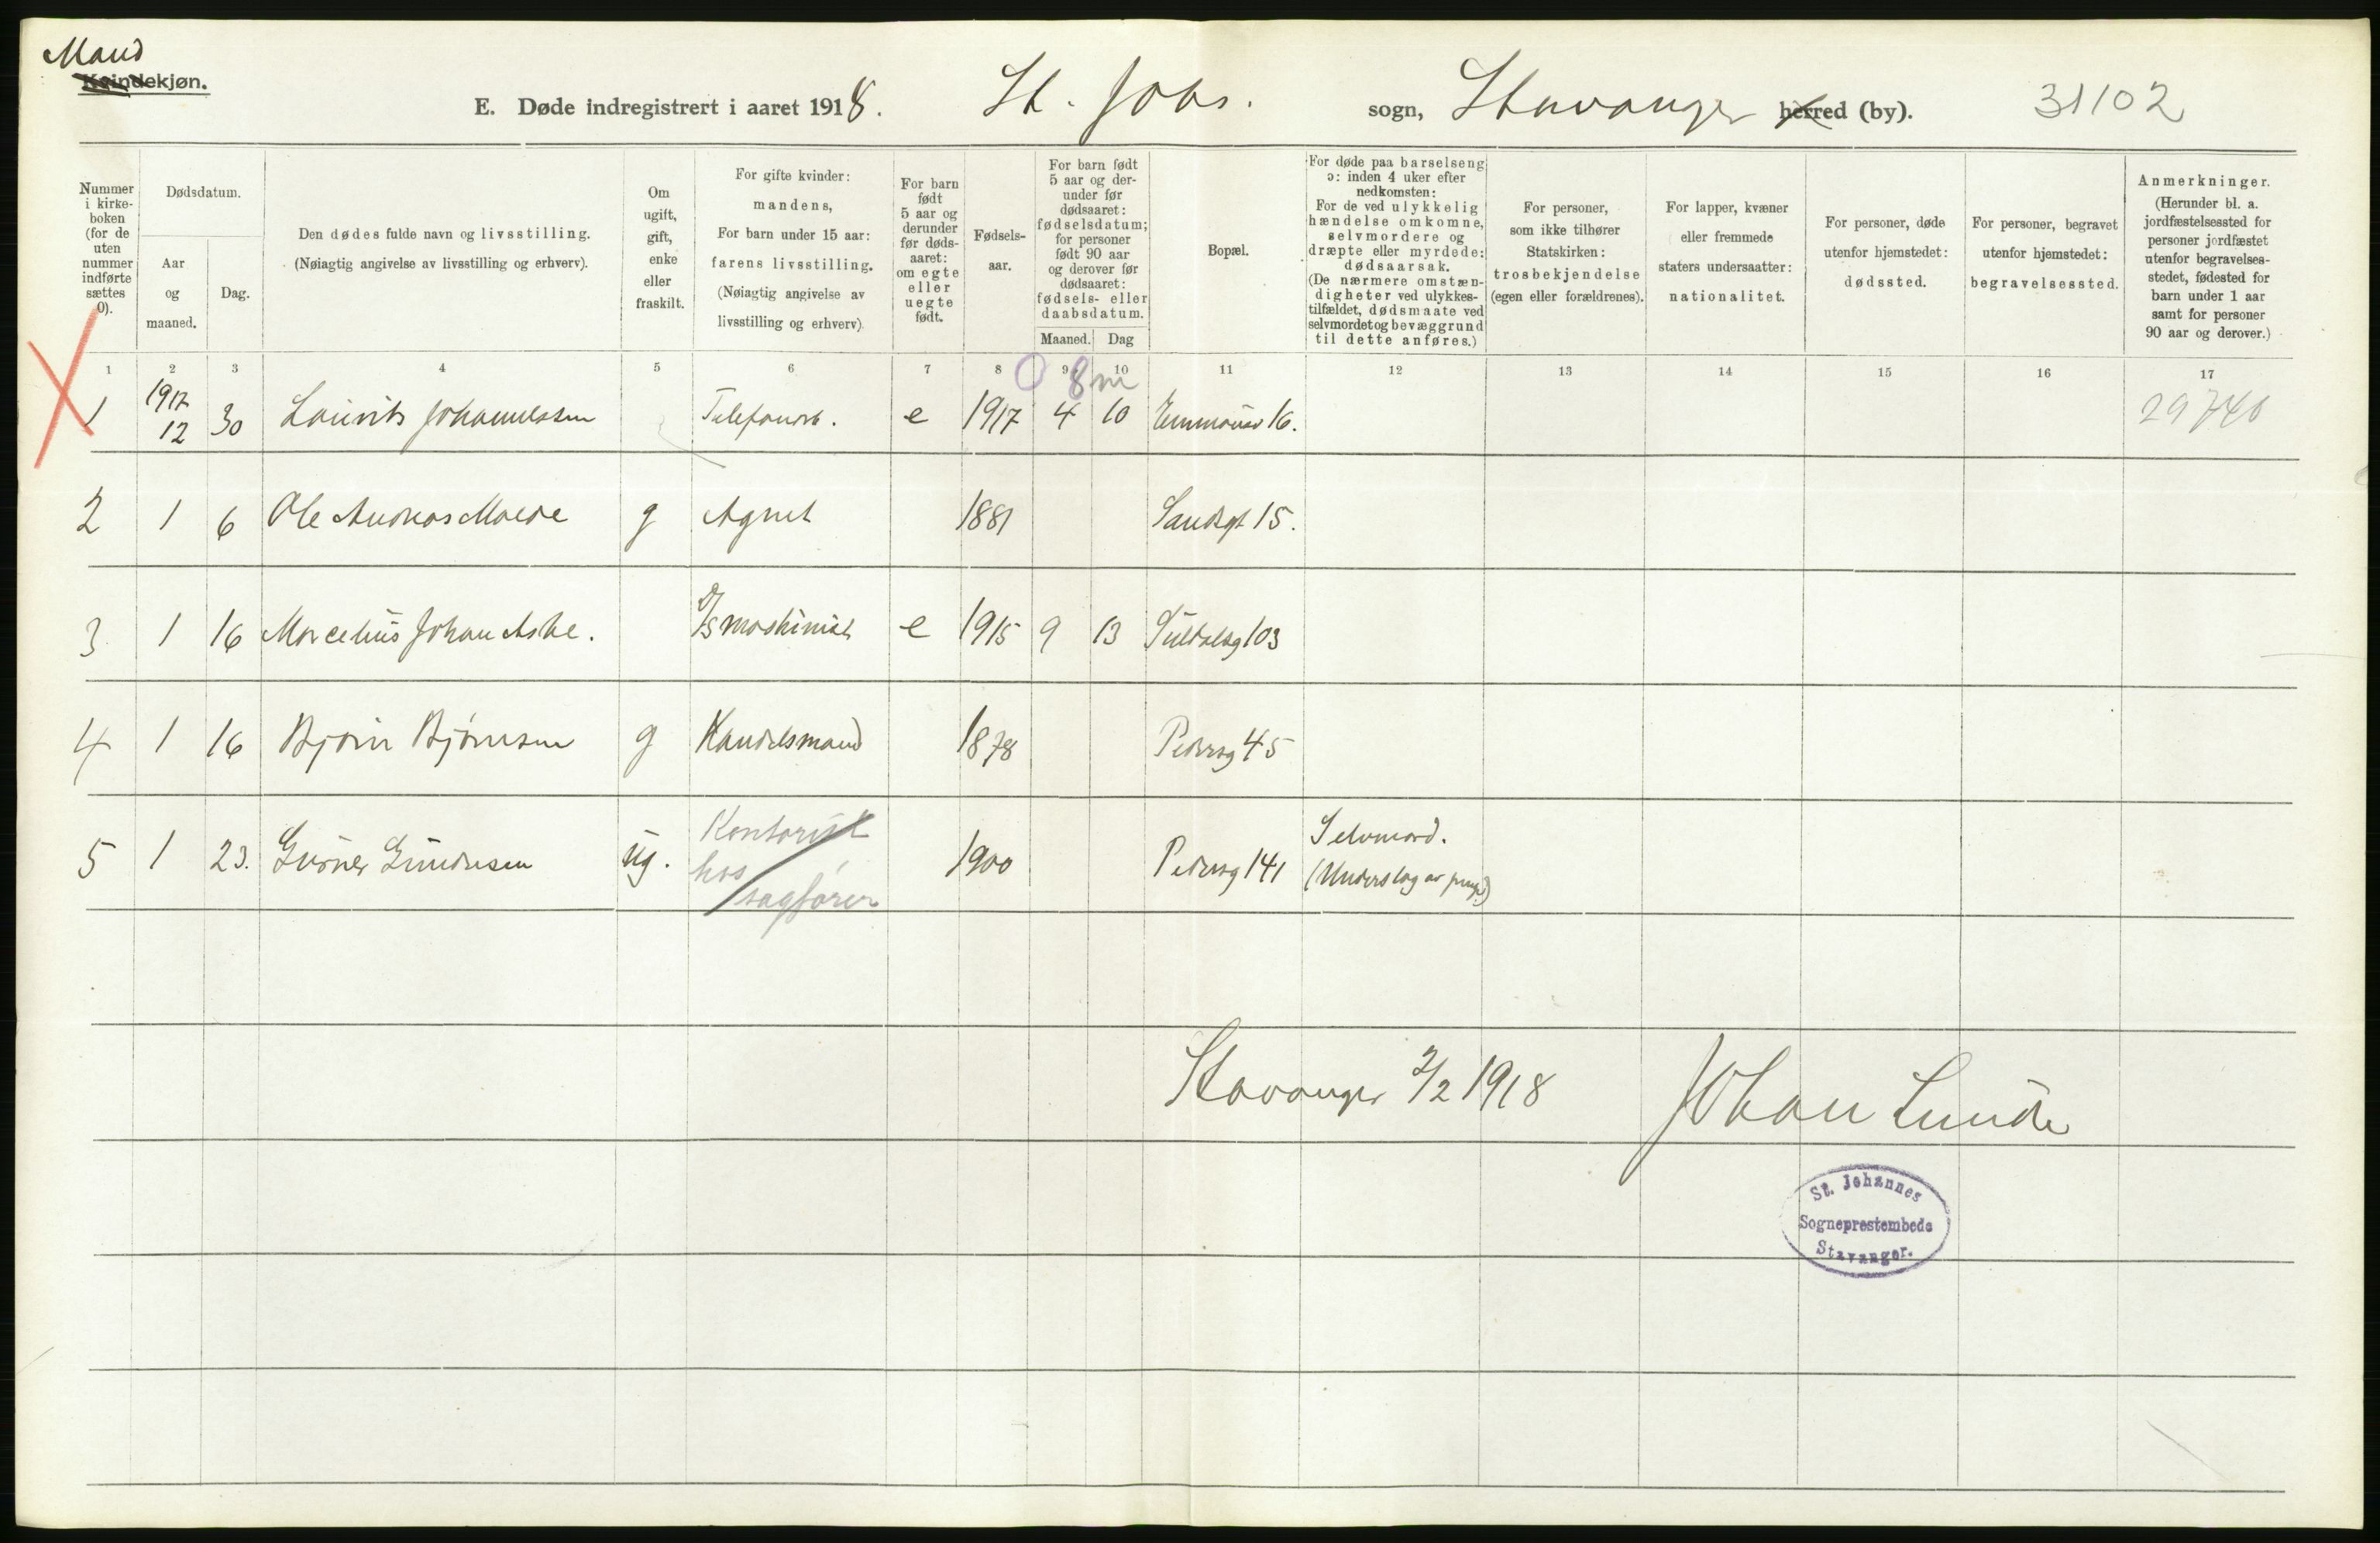 Mand
Kvindekjøn.
E. Døde indregistrert i aaret 1918. St. Johs. sogn, Stavanger herred (by). 31102
Nummer i kirkeboken (for de uten nummer indførte sættes 0).
Dødsdatum.
Aar og maaned.
Dag.
Den dødes fulde navn og livsstilling.
(Nøiagtig angivelse av livsstilling og erhverv).
Om ugift, gift, enke eller fraskilt.
For gifte kvinder:
mandens,
For barn under 15 aar:
farens livsstilling.
(Nøiagtig angivelse av
livsstilling og erhverv)
For barn født 5 aar og derunder før dødsaaret: om egte eller uegte født.
Fødselsaar.
For barn født 5 aar og derunder før dødsaaret: fødselsdatum; for personer født 90 aar og derover før dødsaaret: fødsels- eller daabsdatum.
Maaned. Dag
Bopæl.
For døde paa barselseng ɔ: inden 4 uker efter nedkomsten:
For de ved ulykkelig hændelse omkomne, selvmordere og dræpte eller myrdede: dødsaarsak.
(De nærmere omstændigheter ved ulykkestilfældet, dødsmaate ved selvmordet og bevæggrund til dette anføres.)
For personer,
som ikke tilhører
Statskirken:
trosbekjendelse
(egen eller forældrenes).
For lapper, kvæner
eller fremmede
staters undersaatter:
nationalitet.
For personer, døde
utenfor hjemstedet:
dødssted.
For personer, begravet
utenfor hjemstedet:
begravelsessted.
Anmerkninger.
(Herunder bl. a.
jordfæstelsessted for
personer jordfæstet
utenfor begravelses-
stedet, fødested for
barn under 1 aar
samt for personer
90 aar og derover.)
1 2 3 4 5 6 7 8 9 10 11 12 13 14 15 16 17
0 8 m
1 1917 12 30 Laurits Johannessen Telefonarb. e 1917 4 10 Emmausv 16. 29740
2 1 6 Ole Andreas Moede g Agent 1881 Sandsgt 15.
3 1 16 Marcelius Johan Aske. D/S maskinist e 1915 9 13 Suldalsg 103
4 1 16 Bjørn Bjørnsen g Handelsmand 1878 Pedersg 45
5 1 23. Gunner Gundersen ug. Kontorist hos sagfører 1900 Pedersg 141 Selvmord. (Underslag av penge)
Stavanger 2/2 1918 Johan Lunde
St. Johannes
Sogneprestembede
Stavanger.